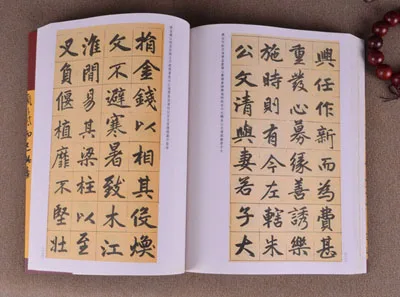 興任作新而為費甚
重發心募緣善誘樂
施時則有今左轄朱
公文清與妻若子大
捐金錢以相其役煥
文不避寒暑致木江
淮間易其梁柱以至
又負偃植靡不堅壯